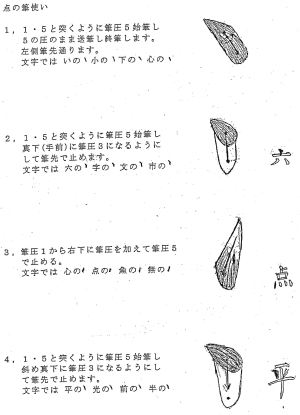 点の筆使い
1，1・5と突くように筆圧5始筆し
5の圧のまま送筆し終筆します。
左側筆先通ります。
文字では いの、小の、下の、心の、
2，1・5と突くように筆圧5始筆し
真下(手前)に筆圧3になるように
して筆先で止めます。
文字では 六の、字の、文の、市の、
六
3，筆圧1から右下に筆圧を加えて筆圧5
で止める。
文字では 心の 点の 魚の 無の
点
4，1・5と突くように筆圧5始筆し
斜め真下に筆圧3になるように
して筆先で止めます。
文字では 平の、光の、前の、半の、
平